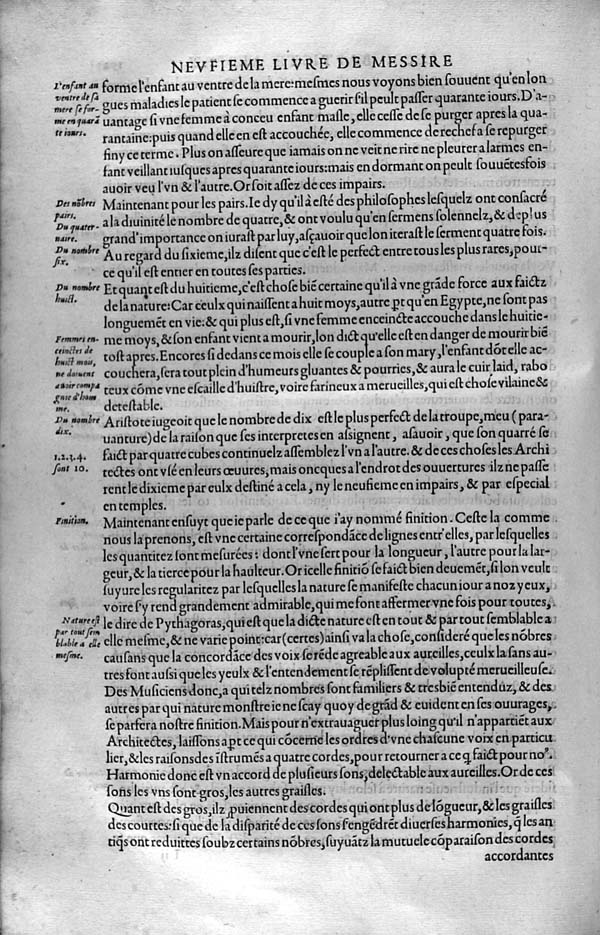 NEVFIEME LIVRE DE MESSIRE
L'enfant au
ventre de sa
mere se for-
me en quarã
te iours.
forme l'enfant au ventre de la mere: mesmes nous voyons bien souuent qu'en lon
gues maladies le patient se commence a guerir s'il peult passer quarante iours. D'a-
uantage si vne femme à conceu enfant masle, elle cesse de se purger apres la qua-
rantaine: puis quand elle en est accouchée, elle commence de rechef a se repurger
finy ce terme. Plus on asseure que iamais on ne veit ne rire ne pleurer a larmes en-
fant veillant iusques apres quarante iours: mais en dormant on peult souuẽtesfois
auoir veu l'vn & l'autre. Or soit assez de ces impairs.
Des nõbres
pairs.
Du quater-
naire.
Maintenant pour les pairs. Ie dy qu'il à esté des philosophes lesquelz ont consacré
a la diuinité le nombre de quatre, & ont voulu qu'en sermens solennelz, & de plus
grand'importance on iurast par luy, asçauoir que lon iterast le serment quatre fois.
Du nombre
six.
Au regard du sixieme, ilz disent que c'est le perfect entre tous les plus rares, pour-
ce qu'il est entier en toutes ses parties.
Du nombre
huict.
Et quant est du huitieme, c'est chose biẽ certaine qu'il à vne grãde force aux faictz
de la nature: Car ceulx qui naissent a huit moys, autre pt qu'en Egypte, ne sont pas
longuemẽt en vie: & qui plus est, si vne femme enceincte accouche dans le huitie-
me moys, & son enfant vient a mourir, lon dict qu'elle est en danger de mourir biẽ
Femmes en-
ceinctes de
huict mois,
ne doiuent
auoir compa
gnie d'hom
me.
tost apres. Encores si dedans ce mois elle se couple a son mary, l'enfant dõt elle ac-
couchera, sera tout plein d'humeurs gluantes & pourries, & aura le cuir laid, rabo
teux cõme vne escaille d'huistre, voire farineux a merueilles, qui est chose vilaine &
detestable.
Du nombre
dix.
Aristote iugeoit que le nombre de dix est le plus perfect de la troupe, meu (para-
uanture) de la raison que ses interpretes en assignent, asauoir, que son quarré se
1.2.3.4.
sont 10.
faict par quatre cubes continuelz assemblez l'vn a l'autre. & de ces choses les Archi
tectes ont vsé en leurs œuures, mais oncques a l'endrot des ouuertures ilz ne passe
rent le dixieme par eulx destiné a cela, ny le neufieme en impairs, & par especial
en temples.
Finition.
Maintenant ensuyt que ie parle de ce que i'ay nommé finition. Ceste la comme
nous la prenons, est vne certaine correspondãce de lignes entr'elles, par lesquelles
les quantitez sont mesurées: dont l'vne sert pour la longueur, l'autre pour la lar-
geur, & la tierce pour la haulteur. Or icelle finitiõ se faict bien deuemẽt, si lon veult
suyure les regularitez par lesquelles la nature se manifeste chacun iour a noz yeux,
voire s'y rend grandement admirable, qui me font affermer vne fois pour toutes,
Nature est
par tout sem
blable a elle
mesme.
le dire de Pythagoras, qui est que la dicte nature est en tout & par tout semblable a
elle mesme, & ne varie point: car (certes) ainsi va la chose, consideré que les nõbres
causans que la concordãce des voix se rẽde agreable aux aureilles, ceulx la sans au-
tres font aussi que les yeulx & l'entendement se rẽplissent de volupté merueilleuse.
Des Musiciens donc, a qui telz nombres sont familiers & tresbiẽ entenduz, & des
autres par qui nature monstre ie ne scay quoy de grãd & euident en ses ouurages,
se parfera nostre finition. Mais pour n'extrauaguer plus loing qu'il n'appartiẽt aux
Architectes, laissons apt ce qui cõcerne les ordres d'vne chascune voix en particu
lier, & les raisons des ĩstrumẽs a quatre cordes, pour retourner a ce q̃ faict pour no⁹.
Harmonie donc est vn accord de plusieurs sons, delectable aux aureilles. Or de ces
sons les vns sont gros, les autres graisles.
Quant est des gros, ilz ꝓuiennent des cordes qui ont plus de lõgueur, & les graisles
des courtes: si que de la disparité de ces sons s'engẽdrẽt diuerses harmonies, q̃ les an
tiq̃s ont reduittes soubz certains nõbres, suyuãtz la mutuele cõparaison des cordes
accordantes